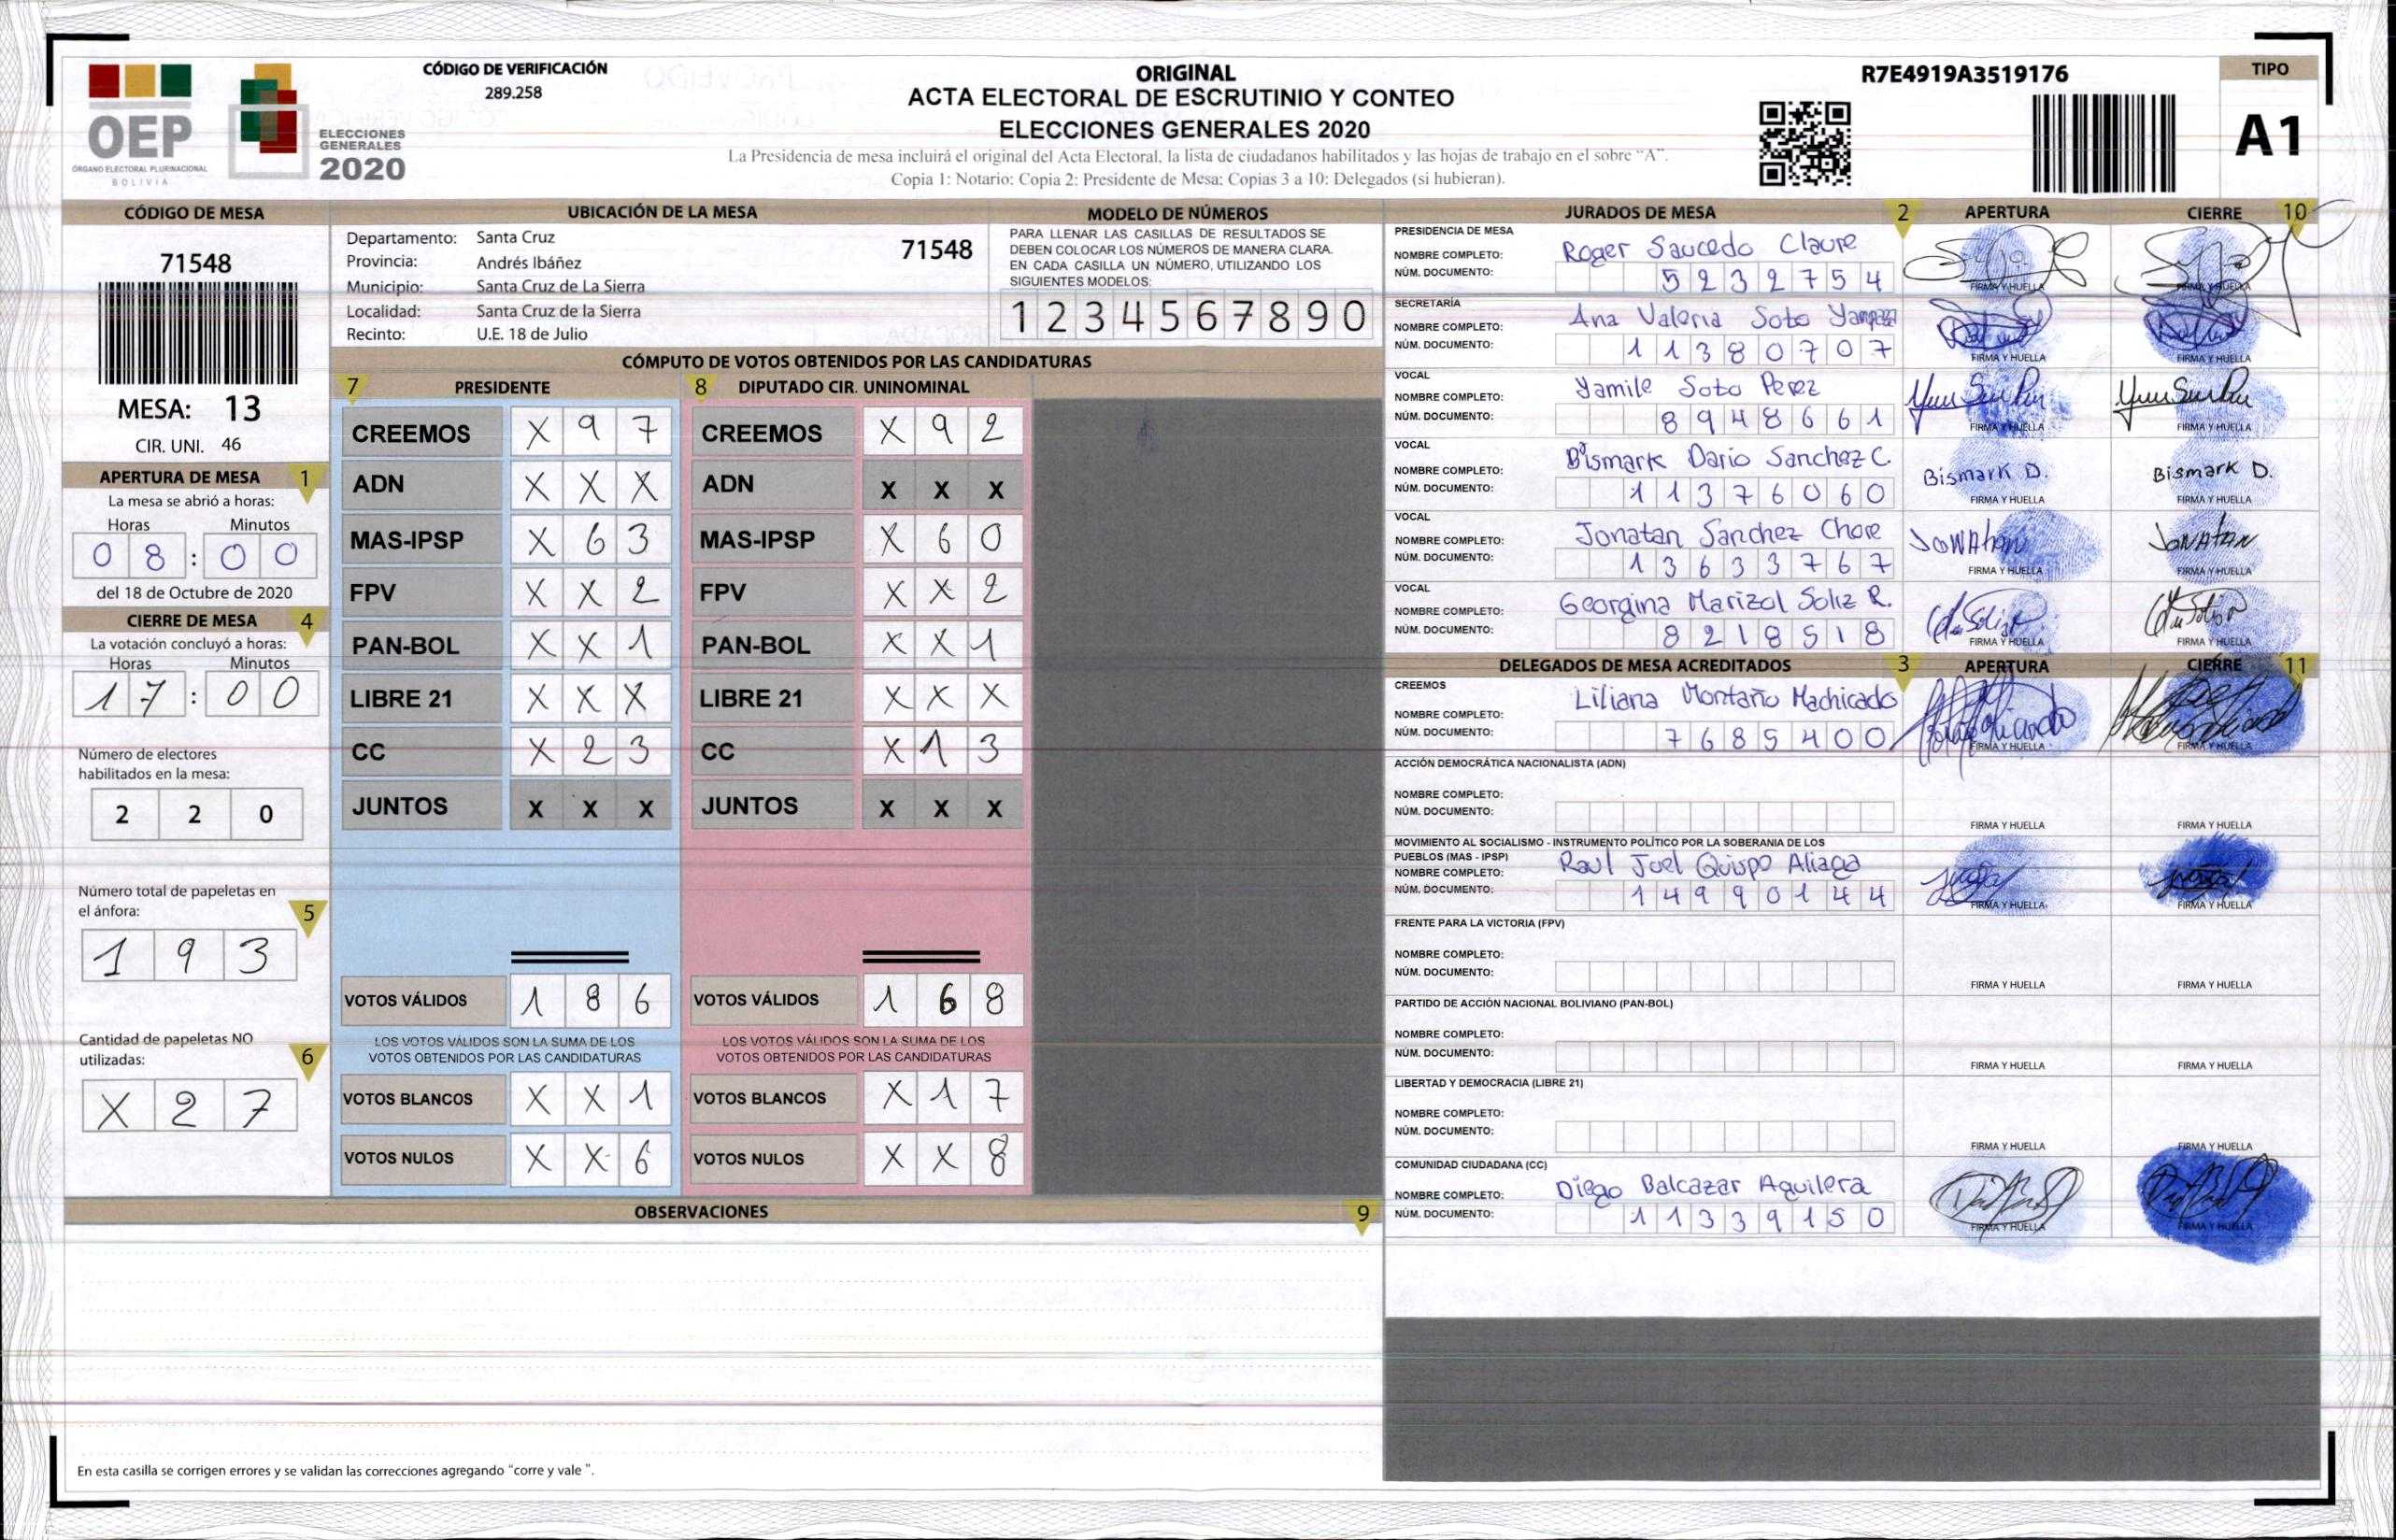 OEP
ÓRGANO ELECTORAL PLURINACIONAL
BOLIVIA
ELECCIONES
GENERALES
2020
CÓDIGO DE VERIFICACIÓN
289.258
ORIGINAL
ACTA ELECTORAL DE ESCRUTINIO Y CONTEO
ELECCIONES GENERALES 2020
La Presidencia de mesa incluirá el original del Acta Electoral, la lista de ciudadanos habilitados y las hojas de trabajo en el sobre "A".
Copia 1: Notario: Copia 2: Presidente de Mesa: Copias 3 a 10: Delegados (si hubieran).
R7E4919A3519176
TIPO
A1
CÓDIGO DE MESA
71548
MESA: 13
CIR. UNI. 46
APERTURA DE MESA 1
La mesa se abrió a horas:
Horas Minutos
0 8 : 0 0
del 18 de Octubre de 2020
CIERRE DE MESA 4
La votación concluyó a horas:
Horas Minutos
1 7 : 0 0
Número de electores
habilitados en la mesa:
2 2 0
Número total de papeletas en
el ánfora: 5
1 9 3
Cantidad de papeletas NO
utilizadas: 6
X 2 7
UBICACIÓN DE LA MESA
Departamento: Santa Cruz 71548
Provincia: Andrés Ibáñez
Municipio: Santa Cruz de La Sierra
Localidad: Santa Cruz de la Sierra
Recinto: U.E. 18 de Julio
MODELO DE NÚMEROS
PARA LLENAR LAS CASILLAS DE RESULTADOS SE
DEBEN COLOCAR LOS NÚMEROS DE MANERA CLARA.
EN CADA CASILLA UN NÚMERO, UTILIZANDO LOS
SIGUIENTES MODELOS:
1 2 3 4 5 6 7 8 9 0
CÓMPUTO DE VOTOS OBTENIDOS POR LAS CANDIDATURAS
7 PRESIDENTE 8 DIPUTADO CIR. UNINOMINAL
CREEMOS X 9 7 CREEMOS X 9 2
ADN X X X ADN X X X
MAS-IPSP X 6 3 MAS-IPSP X 6 0
FPV X X 2 FPV X X 2
PAN-BOL X X 1 PAN-BOL X X 1
LIBRE 21 X X X LIBRE 21 X X X
CC X 2 3 CC X 1 3
JUNTOS X X X JUNTOS X X X
VOTOS VÁLIDOS 1 8 6 VOTOS VÁLIDOS 1 6 8
LOS VOTOS VÁLIDOS SON LA SUMA DE LOS LOS VOTOS VÁLIDOS SON LA SUMA DE LOS
VOTOS OBTENIDOS POR LAS CANDIDATURAS VOTOS OBTENIDOS POR LAS CANDIDATURAS
VOTOS BLANCOS X X 1 VOTOS BLANCOS X 1 7
VOTOS NULOS X X 6 VOTOS NULOS X X 8
OBSERVACIONES 9
En esta casilla se corrigen errores y se validan las correcciones agregando "corre y vale ".
JURADOS DE MESA 2 APERTURA CIERRE 10
PRESIDENCIA DE MESA
NOMBRE COMPLETO: Roger Saucedo Claure
NÚM. DOCUMENTO: 5 2 3 2 7 5 4 FIRMA Y HUELLA FIRMA Y HUELLA
SECRETARÍA
NOMBRE COMPLETO: Ana Valeria Soto
NÚM. DOCUMENTO: 1 1 3 8 0 7 0 7 FIRMA Y HUELLA FIRMA Y HUELLA
VOCAL
NOMBRE COMPLETO: Yamile Soto Perez
NÚM. DOCUMENTO: 8 9 4 8 6 6 1 FIRMA Y HUELLA FIRMA Y HUELLA
VOCAL
NOMBRE COMPLETO: Bismark Dario Sanchez C. Bismark D. Bismark D.
NÚM. DOCUMENTO: 1 1 3 7 6 0 6 0 FIRMA Y HUELLA FIRMA Y HUELLA
VOCAL
NOMBRE COMPLETO: Jonatan Sanchez Chore JONAtan JONAtan
NÚM. DOCUMENTO: 1 3 6 3 3 7 6 7 FIRMA Y HUELLA FIRMA Y HUELLA
VOCAL
NOMBRE COMPLETO: Georgina Marizol Soliz R.
NÚM. DOCUMENTO: 8 2 1 8 5 1 8 FIRMA Y HUELLA FIRMA Y HUELLA
DELEGADOS DE MESA ACREDITADOS 3 APERTURA CIERRE 11
CREEMOS
NOMBRE COMPLETO: Liliana Montaño Machicado
NÚM. DOCUMENTO: 7 6 8 5 4 0 0 FIRMA Y HUELLA FIRMA Y HUELLA
ACCIÓN DEMOCRÁTICA NACIONALISTA (ADN)
NOMBRE COMPLETO:
NÚM. DOCUMENTO: FIRMA Y HUELLA FIRMA Y HUELLA
MOVIMIENTO AL SOCIALISMO - INSTRUMENTO POLÍTICO POR LA SOBERANIA DE LOS
PUEBLOS (MAS - IPSP)
NOMBRE COMPLETO: Raul Joel Quispo Aliaga
NÚM. DOCUMENTO: 1 4 9 9 0 1 4 4 FIRMA Y HUELLA FIRMA Y HUELLA
FRENTE PARA LA VICTORIA (FPV)
NOMBRE COMPLETO:
NÚM. DOCUMENTO: FIRMA Y HUELLA FIRMA Y HUELLA
PARTIDO DE ACCIÓN NACIONAL BOLIVIANO (PAN-BOL)
NOMBRE COMPLETO:
NÚM. DOCUMENTO: FIRMA Y HUELLA FIRMA Y HUELLA
LIBERTAD Y DEMOCRACIA (LIBRE 21)
NOMBRE COMPLETO:
NÚM. DOCUMENTO: FIRMA Y HUELLA FIRMA Y HUELLA
COMUNIDAD CIUDADANA (CC)
NOMBRE COMPLETO: Diego Balcazar Aguilera
NÚM. DOCUMENTO: 1 1 3 3 9 1 5 0 FIRMA Y HUELLA FIRMA Y HUELLA